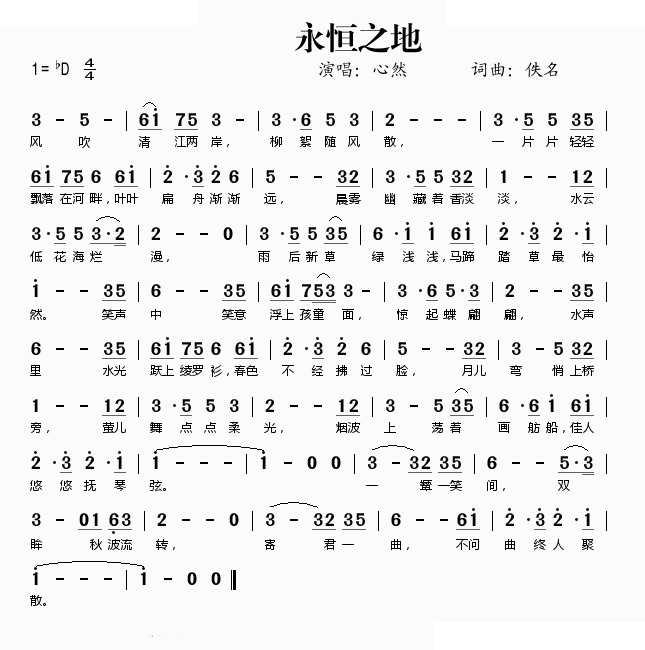 永恒之地
1=♭D 4/4 演唱：心然 词曲：佚名
3 - 5 - | 6i 75 3 - | 3·6 5 3 | 2 - - - | 3·5 5 35 |
风 吹 清 江两 岸， 柳 絮 随 风 散， 一 片 片 轻轻
6i 75 6 6i | 2·3 2 6 | 5 - - 32 | 3·5 5 32 | 1 - - 12 |
飘落 在河 畔，叶叶 扁 舟 渐渐 远， 晨雾 幽 藏着 香淡 淡， 水云
3·5 5 3·2 | 2 - - 0 | 3·5 5 35 | 6·i i 6i | 2·3 2·i |
低 花 海 烂 漫， 雨 后 新 草 绿 浅 浅，马蹄 踏 草 最 怡
i - - 35 | 6 - - 35 | 6i 753 3 - | 3·6 5·3 | 2 - - 35 |
然。 笑声 中 笑意 浮上 孩童 面， 惊 起 蝶 翩 翩， 水声
6 - - 35 | 6i 75 6 6i | 2·3 2 6 | 5 - - 32 | 3 - 5 32 |
里 水光 跃上 绫罗 衫，春色 不 经 拂 过 脸， 月儿 弯 悄 上桥
1 - - 12 | 3·5 5 3 | 2 - - 12 | 3 - 5 35 | 6·6 i 6i |
旁， 萤儿 舞 点 点 柔 光， 烟波 上 荡 着 画 舫 船，佳人
2·3 2·i | i - - - | i - 0 0 | 3 - 32 35 | 6 - - 5·3 |
悠 悠 抚 琴 弦。 一 颦一笑 间， 双
3 - 01 63 | 2 - - 0 | 3 - 32 35 | 6 - - 6i | 2·3 2·i |
眸 秋 波流 转， 寄 君 一 曲， 不问 曲 终 人 聚
i - - - | i - 0 0 ‖
散。